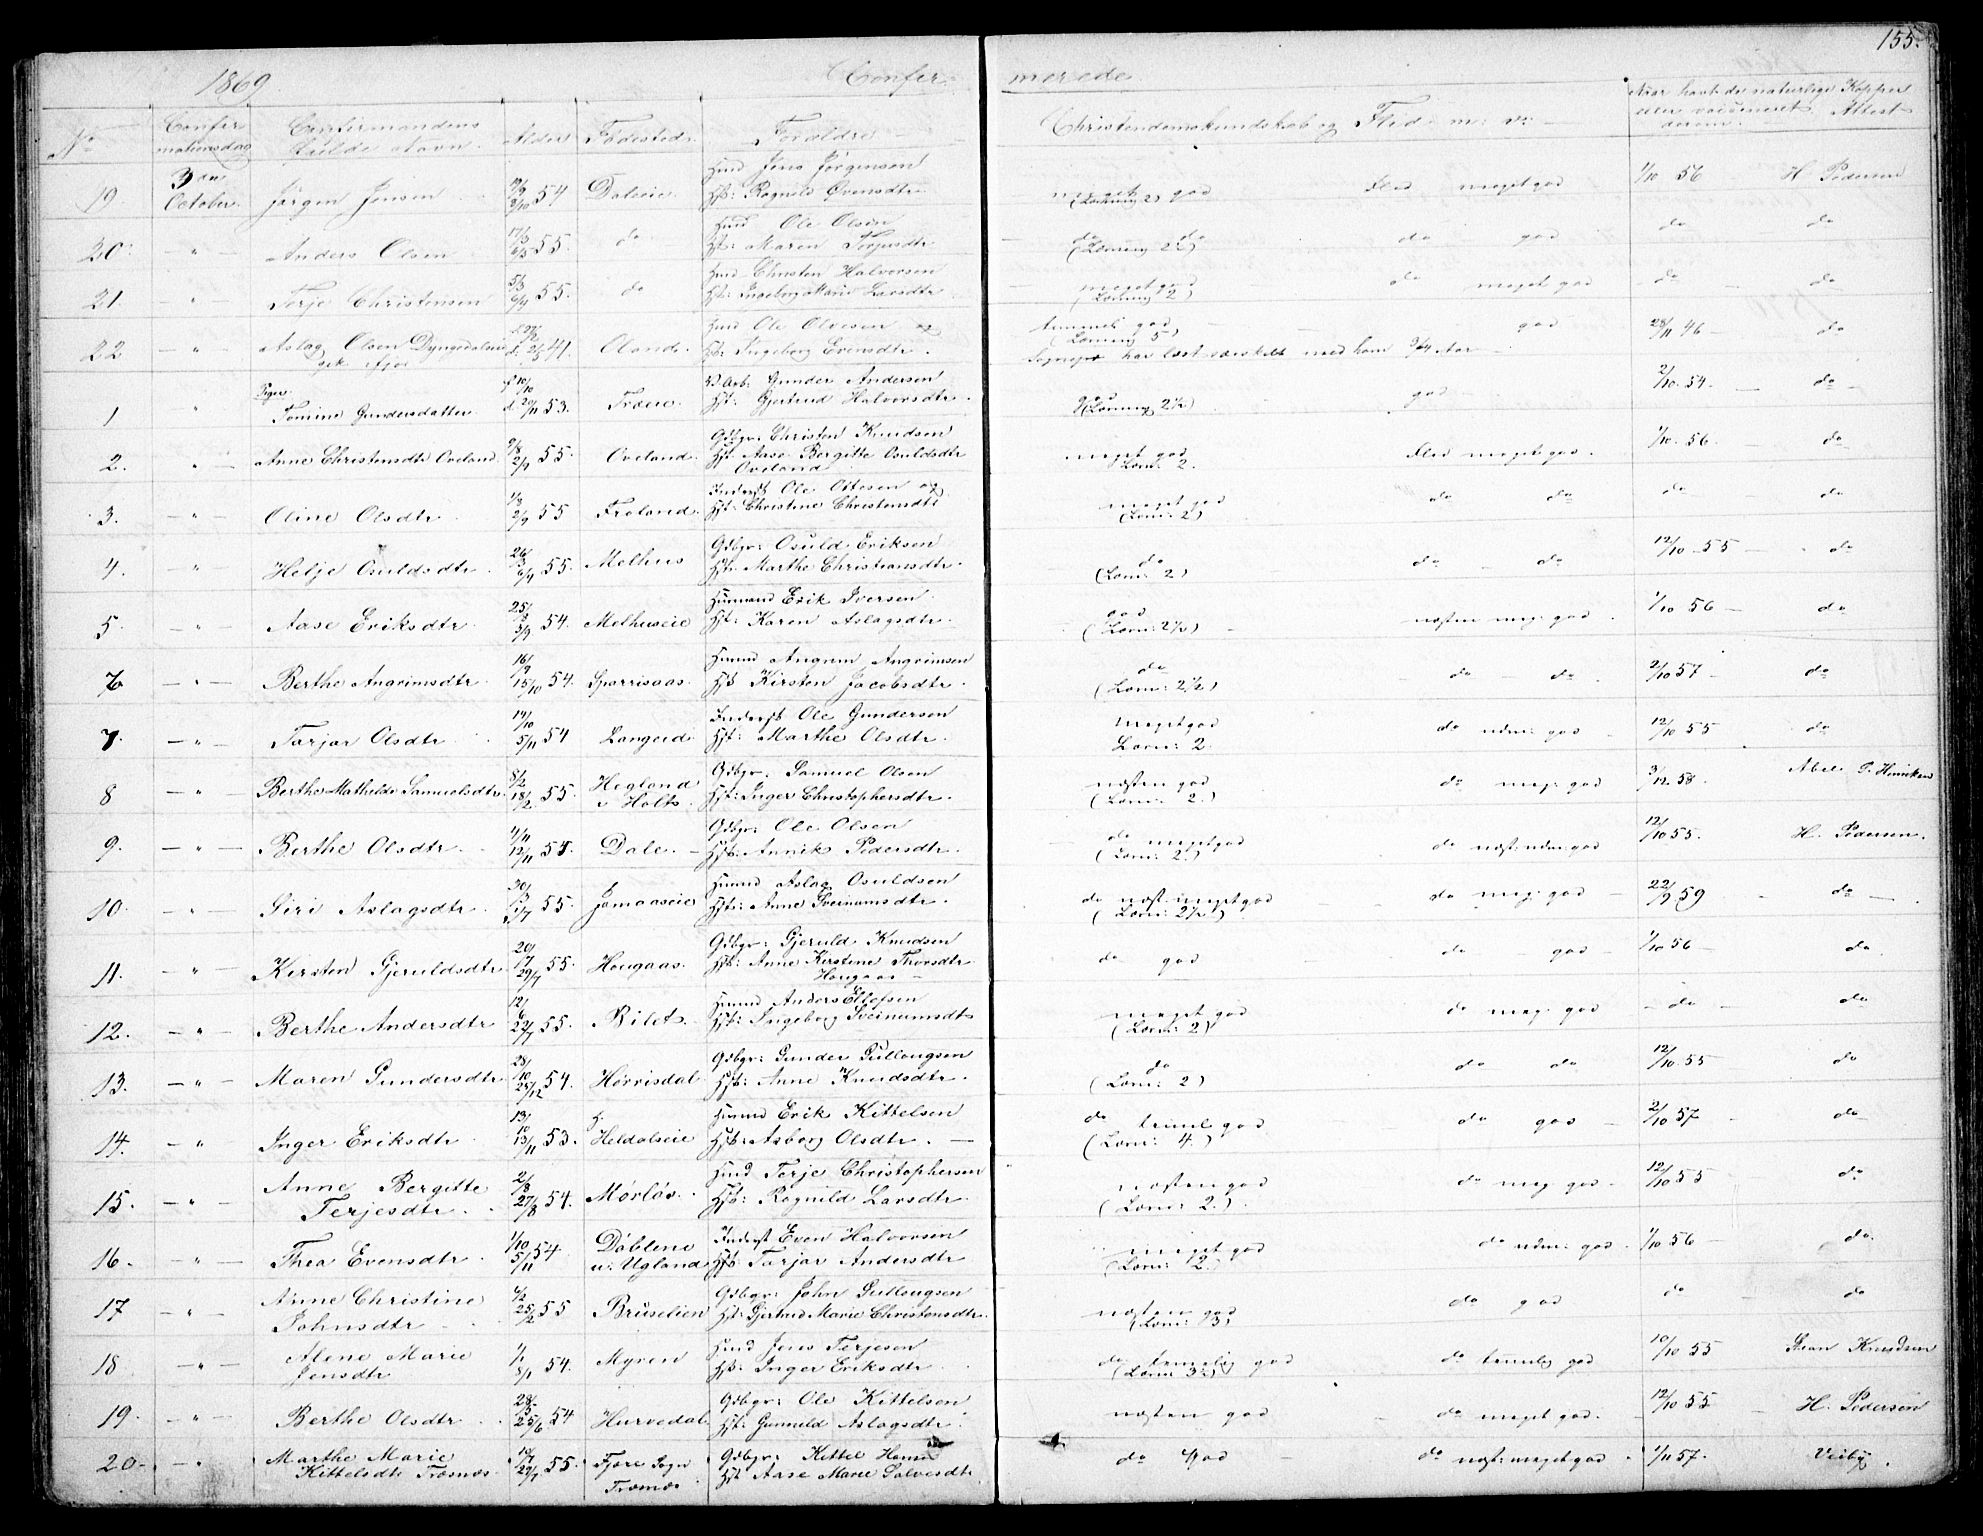 155.
1869 Confir- merede
No Confirmationsdag Confirmandens fulde Navn. Alder Fødested Forældre Christendomskundskab og Flid m: v: Naar havt de naturlige Kopper eller vaccineret Attest derom.
19 3die October Jørgen Jensen 54 Daleeie Hmd Jens Jørgensen Hst: Ragnild Øvensdtr meget god (Læsning 2) Flid meget god 1/10 56 H. Pedersen
20 " Anders Olsen 17/3 6/5 55 do Hmd Ole Olsen Hst: Maren Torjusdtr do do (Læsning 2½) do god do do
21 " Terje Christensen 55 do Hmd Christen Halvorsen Hst: Ingeborg Marie Larsdtr meget god (Læsning 2) do meget god do do
22 " Aslag Olsen Dyngedalen 41. Oland Hmd Ole Olvesen og Hst: Ingeborg Evensdtr. temmel god (Læsning 5) god 28/11 46 do
har læst særskilt med ham 3/4 Aar
Piger
1 " Tomine Gundersdatter f 10/10 d 20/11 53. Træeie Gunder Andersen Hst: Gjertrud Halvorsdtr. god (Læsning 2½) god 2/10 54. do
2. " Anne Christensdtr Oveland 9/8 2/9 55 Oveland Gdbgr: Christen Knudsen Hst: Aase Bergitte Osuldsdtr Oveland meget god Læsn: 2. Flid meget god. 1/10. 56. do
3. " Oline Olsdtr 1/8 2/9 55 Froland. Inderst Ole Ottesen og Hst: Christine Christensdtr meget god (Læsn: 2) do do do do
4. " Helje Osuldsdtr 55. Melhus Gdbgr: Osuld Eriksen Hst: Marthe Christiansdtr. do (Læsn: 2) do do 12/10 55 do
5. " Aase Eriksdtr 54. Melhuseie Husmand Erik Iversen Hst: Karen Aslagsdtr. god (Læsn: 2½) næsten meg: god. 1/10 56 do
6 " Berthe Angrimsdtr 16/9 15/10 54. Sparrisaas Husmd Angrim Angrimsen Hst: Kirsten Jacobsdtr. do (Læsn: 2½) do do 2/10 57 do
7. " Tarjar Olsdtr 14/10 5/11 54 Langerid Inderst Ole Gundersen Hst: Marthe Olsdtr. Meget god Læsn: 2. do udm: god 12/10 55 do
8 " Berthe Mathilde Samuelsdtr 5/2 18/2. 55. Hegland v. Holts. Gdbgr: Samuel Olsen Hst: Inger Christophersdtr. næsten god (Læsn: 2.) do meg: god 3/12. 58.
9. " Berthe Olsdtr 4/11 12/11 54. Dale Gdbgr: Ole Olsen Hst: Annik Pedersdtr. do meget god (Læsn: 2.) do næst: udm: god 12/10 55. H. Pedersen.
10. " Siri Aslagsdtr 55. Jomaaseie Husmd Aslag Osuldsen Hst: Anne Sveinumsdtr. do næst: meget god (Læsn: 2½) do meg: god 22/9 59 do
11. " Kirsten Gjeruldsdtr 20/7 29/7 55. Hougaas. Gdbgr: Gjeruld Knudsen Hst: Anne Kirstine Thorsdtr Hougaas do god do god 1/10 56 do
12. " Berthe Andersdtr 12/6 22/7 55. Bilet Husmd Anders Ellefsen Hst: Ingeborg Sveinumsdtr meget god (Læsn: 2) do meg: god do do
13. " Maren Gundersdtr 28/10 25/12 54. Hørrisdal Gdbgr: Gunder Gullougsen Hst: Anne Knudsdtr. do (Læsn: 2) do do 12/10 55 do
14. " Inger Eriksdtr 13/10 13/11 53. Heldalseie Husmd Erik Kittelsen Hst: Asborg Olsdtr. do teml god (Læsn: 4.) do god 2/10 57 do
15. " Anne Bergitte Terjesdtr. 2/8 27/8 54. Mørløs. Hmd Terje Christophersen Hst: Ragnild Larsdtr. næsten god (Læsn: 2.) do meg god. 12/10 55 do
16. " Thea Evensdtr 1/10 5/11 54 Døblene u: Ugland Inderst Even Halvorsen Hst: Tarjar Andersdtr. meget god (Læsn: 2.) do udm: god. 1/10 56 do.
17 " Anne Christine Johnsdtr 4/2 25/2 55 Bruselien Gdbgr: John Gullougsen Hst: Gjertrud Marie Christensdtr. næsten god (Læsn: 3) do god do do
18 " Alene Marie Jensdtr 54. Myren Hmd Jens Terjesen Hst: Inger Eriksdtr. do temelig god (Læsn: 3½) do temlig god 10/10 55 Knudsen
19. " Berthe Olsdtr 28/5 25/6 54 Hurvedal. Gdbgr: Ole Kittelsen Hst: Gunuld Aslagsdtr. næsten god do meget god. 12/10 55 H. Pedersen
20. " Marthe Marie Kittelsdtr Tromøs. 55. Fjære Sogn Tromøs Gdbgr: Kittel Hansen Hst Aase Marie Salvesdtr. do god do næst: meget god. 1/11 57. Veiby.